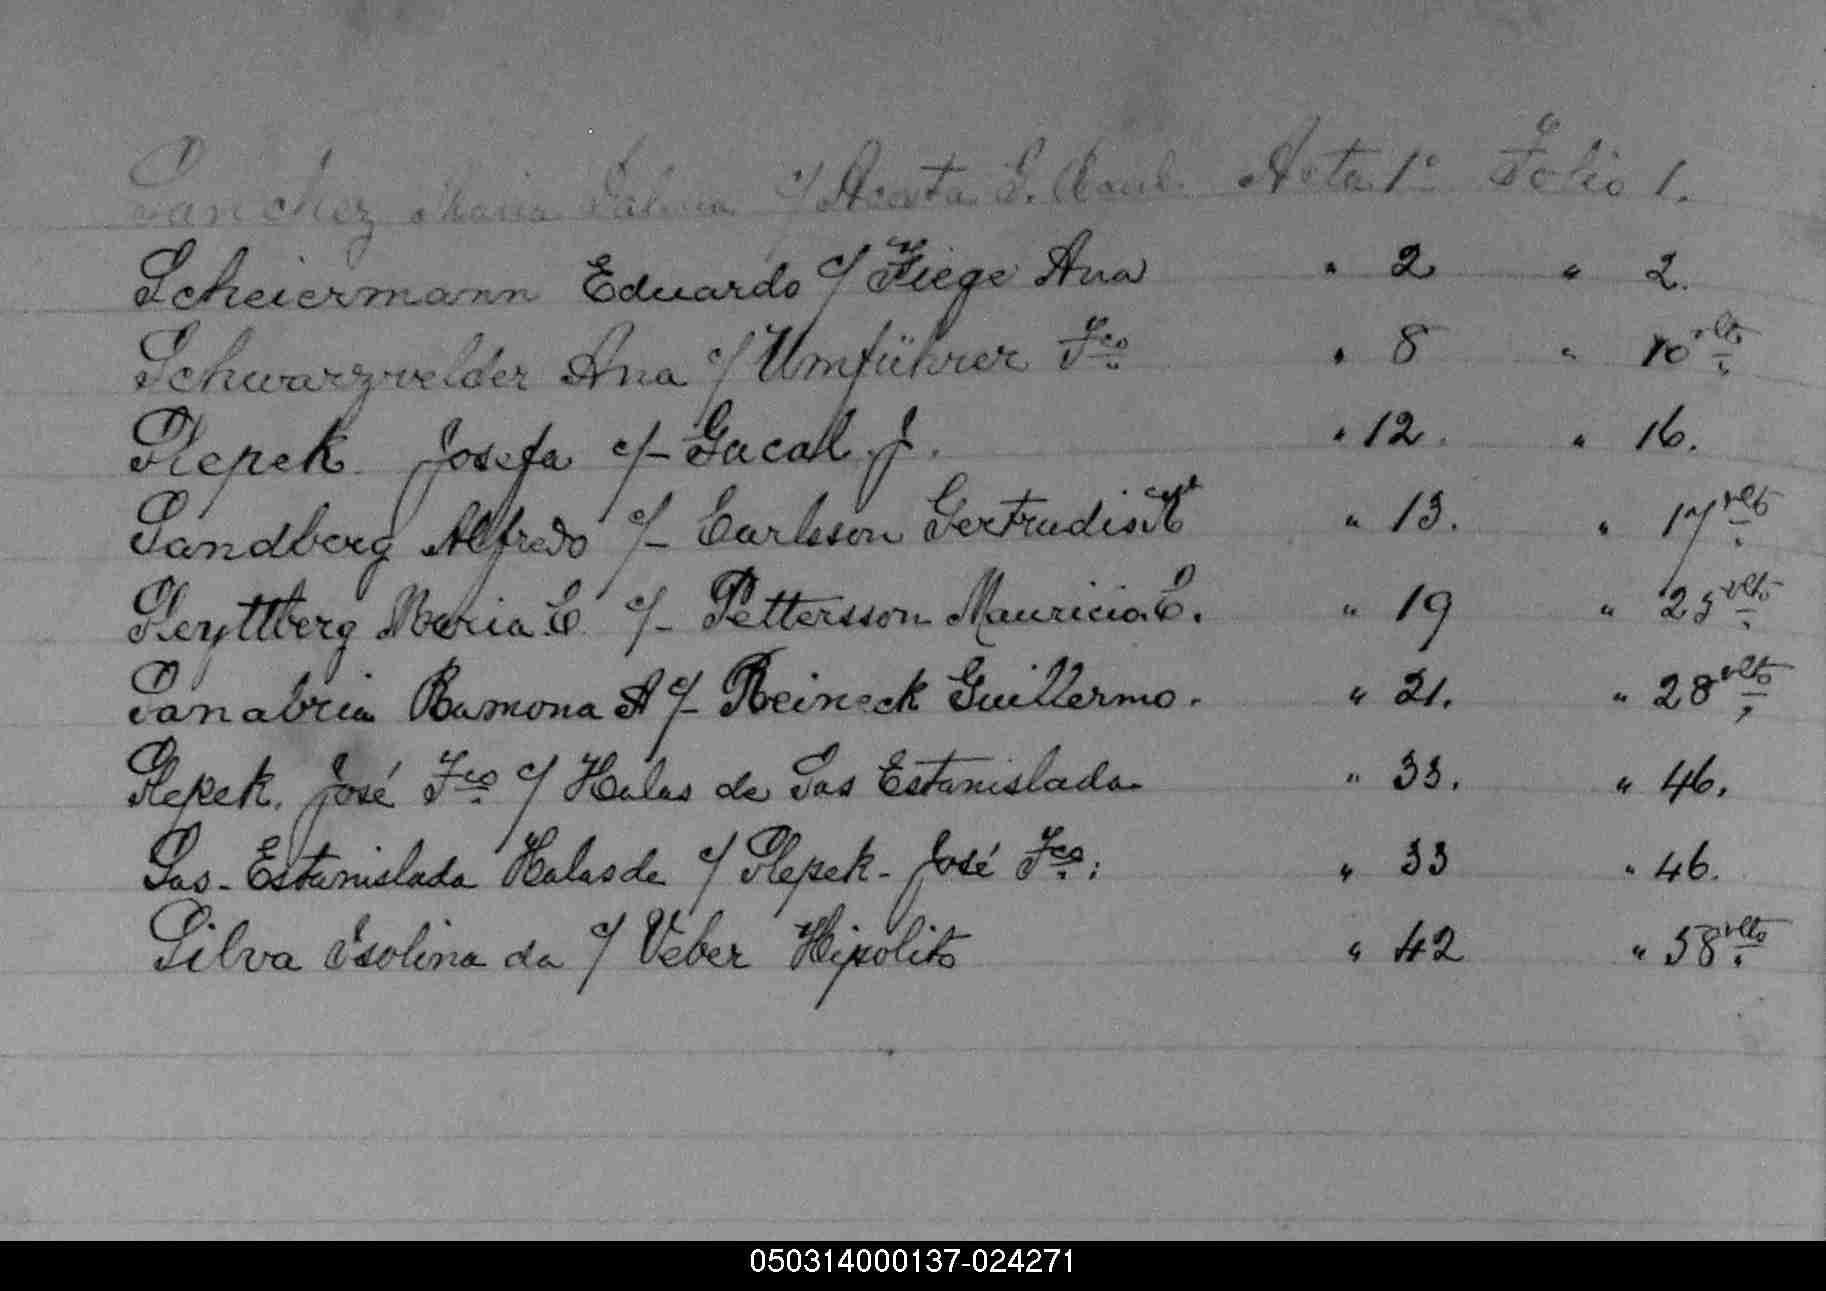 Sanchez Maria c/ Acosta S. Raul. Acta 1º Folio 1.
Scheiermann Eduardo c/ Fiege Ana " 2 " 2.
Schwarzwelder Ana c/ Umführer Fco " 8 " 10 vlto
Slepek Josefa c/- Gacal J. " 12. " 16.
Sandberg Alfredo c/- Carlsson Gertrudis " 13. " 17 vlto
Maria E. c/- Pettersson Mauricio E. " 19 " 25 vlto
Sanabria Ramona A c/- Reineck Guillermo. " 21. " 28 vlto
Slepek, José Fco c/ Halas de Sas Estanislada " 33. " 46.
Sas - Estanislada Halas de c/ Slepek - José Fco: " 33 " 46.
Silva Isolina da c/ Veber Hipolito " 42 " 58 vlto
050314000137-024271